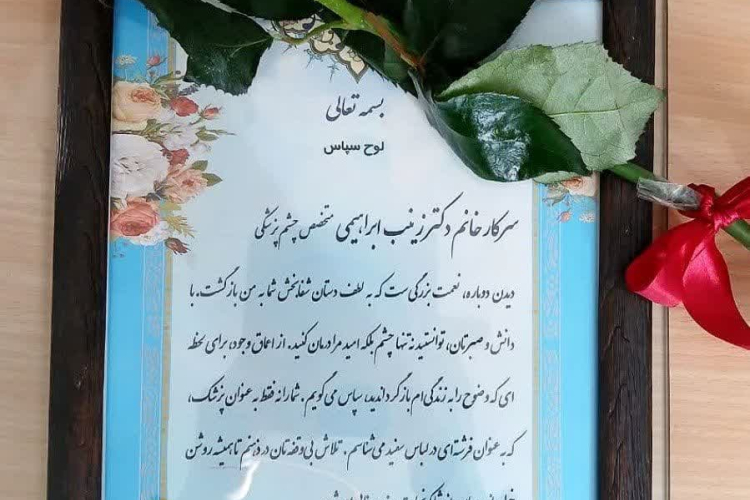 بسمه تعالی
لوح سپاس
سرکار خانم دکتر زینب ابراهیمی متخصص چشم پزشکی
دیدن دوباره، نعمت بزرگی ست که به لطف دستان شفابخش شما به من بازگشت. با
دانش و صبرتان، توانستید نه تنها چشم بلکه امید مرا درمان کنید. از اعماق وجود، برای لحظه
ای که وضوح را به زندگی ام بازگرداندید، سپاس می گویم. شما را نه فقط به عنوان پزشک،
که به عنوان فرشته ای در لباس سفید می شناسم. تلاش بی وقفه تان در ذهنم تا همیشه روشن